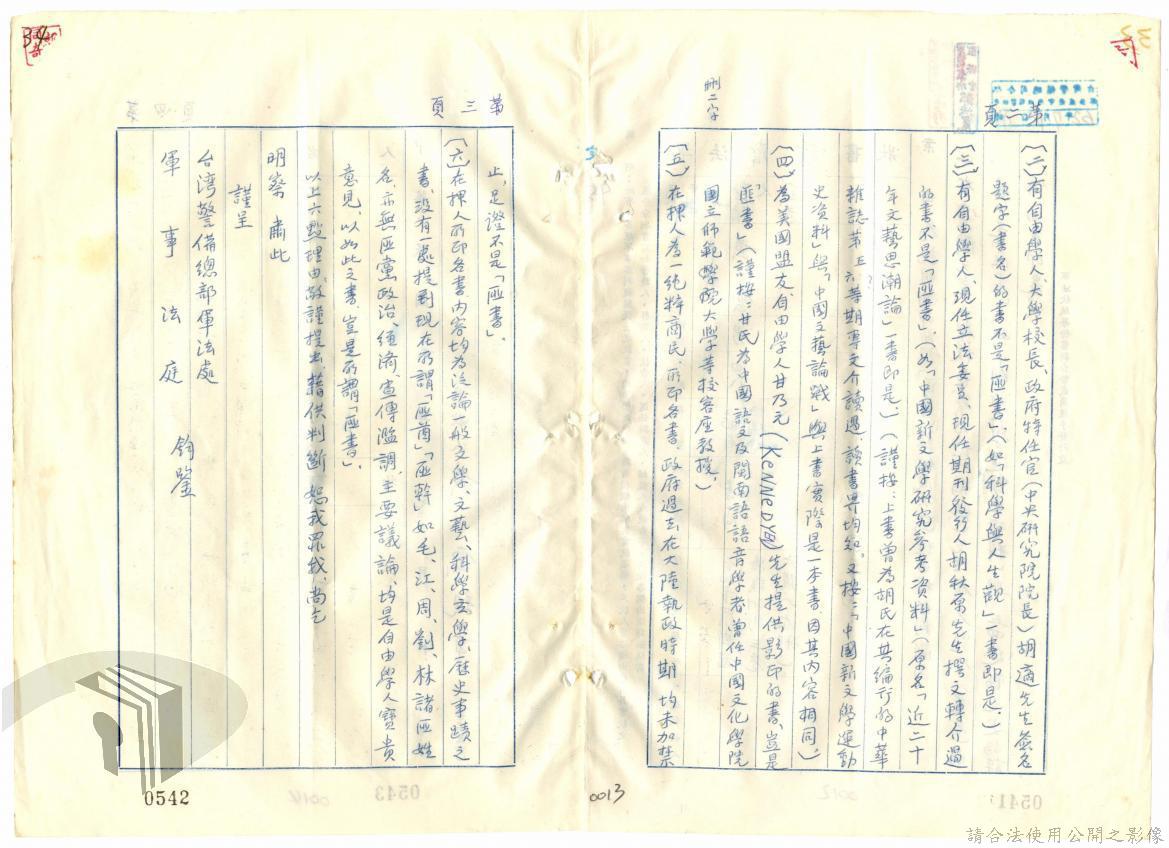 第二頁
(二)有自由學人、大學校長、政府特任官(中央研究院院長)胡適先生簽名
題字(書名)的書不是「匪書」.(如「科學與人生觀」一書即是.)
(三)有自由學人、現任立法委員、現任期刊發行人胡秋原先生撰文轉介過
的書、不是「匪書」.(如「中國新文學研究參考資料」(原名「近二十
年文藝思潮論」一書即是.)(謹按:上書曾為胡氏在其編行的中華
雜誌第五、六等期專文介讀過.讀書界均知.又按:「中國新文學運動
史資料」與「中國文藝論戰」與上書實際是一本書因其內容相同.)
(四)為美國盟友、自由學人甘乃元(KENNEDY)先生提供影印的書、豈是
「匪書」(謹按:甘氏為中國語文及閩南語語音學者曾任中國文化學院
刪二字
國立師範學院大學等校客座教授.)
(五)在押人為一純粹商民.所印各書.政府過去在大陸執政時期.均未加禁
第三頁
止,足證不是「匪書」.
(六)在押人所印各書、內容均為泛論一般文學、文藝、科學玄學、歷史事蹟之
書,沒有一處提到現在所謂「匪酋」「匪幹」如毛、江、周、劉、林諸匪姓
名.亦無匪黨政治、經濟、宣傳濫調.主要議論.均是自由學人寶貴
意見、以如此之書.豈是所謂「匪書」.
以上六點理由.敬謹提出.藉供判斷.恕我罪我.尚乞
明察 肅此
謹呈
台湾警備總部軍法處
軍事法庭 鈞鑒
34
0542
0013
0543
0014
0012
0541
請合法使用公開之影像